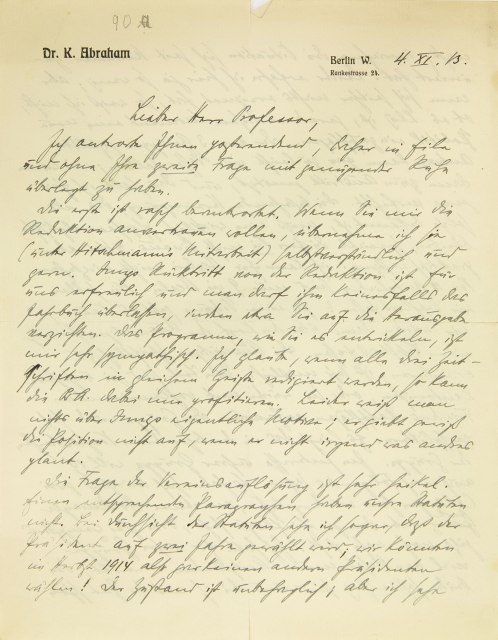 90a
Dr. K. Abraham
Berlin W. 4. XI. 13.
Rankestrasse 24.
Lieber Herr Professor,
Ich antworte Ihnen postwendend, daher in Eile
und ohne Ihre zweite Frage mit genügender Ruhe
überlegt zu haben.
Die erste ist rasch beantwortet. Wenn Sie mir die
Redaktion anvertrauen wollen, übernehme ich sie
(unter Hitschmanns Mitarbeit) selbstverständlich und
gern. Jungs Rücktritt von der Redaktion ist für
uns erfreulich und man darf ihm keinesfalls das
Jahrbuch überlassen, indem etwa Sie auf die Herausgabe
verzichten. Das Programm, wie Sie es entwickeln, ist
mir sehr sympathisch. Ich glaube, wenn alle drei Zeit-
schriften in gleichem Geiste redigiert werden, so kann
die ΨA. dabei nur profitieren. Leider weiß man
nichts über Jungs eigentliche Motive; er giebt gewiß
die Position nicht auf, wenn er nicht irgend was anders
plant.
Die Frage der Vereinsauflösung ist sehr heikel.
Einen entsprechenden Paragraphen haben unsre Statuten
nicht. Bei Durchsicht der Statuten sehe ich sogar, daß der
Präsident auf zwei Jahre gewählt wird; wir könnten
im Herbst 1914 also gar keinen andern Präsidenten
wählen! Der Zustand ist unbehaglich; aber ich sehe